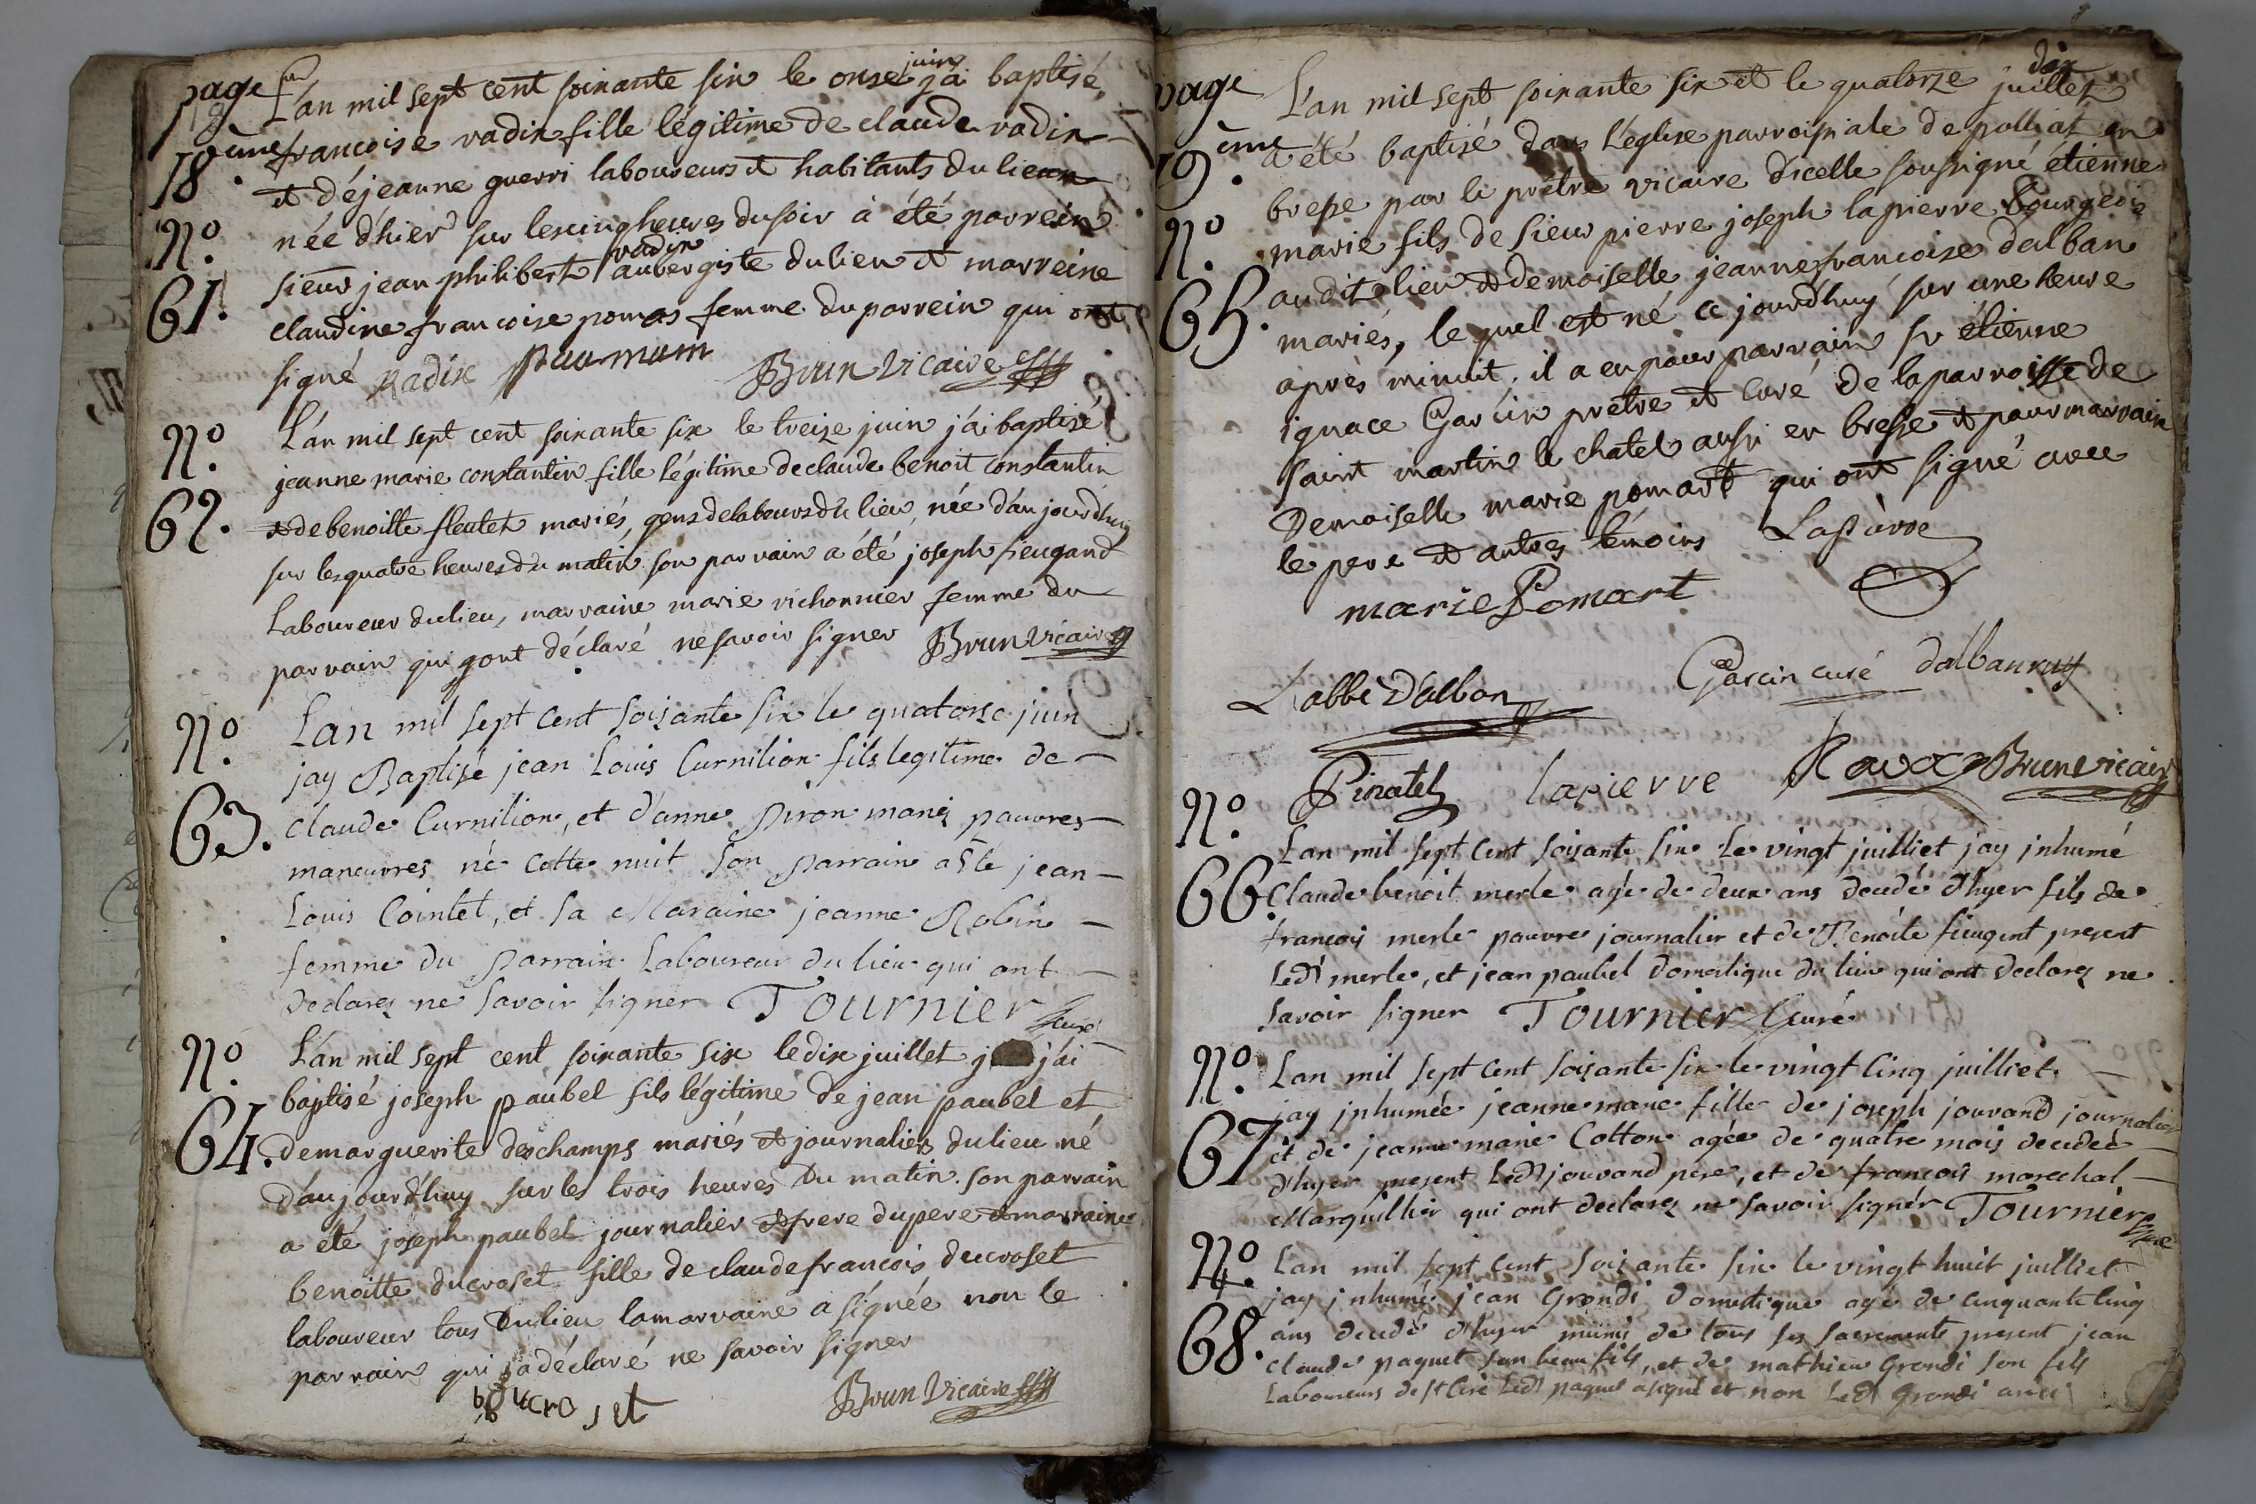 page
18
18.eme
L'an mil sept cent soixante six le onze juin j'ai baptisé
francoise vadix fille légitime de claude vadix
et déjeanne guerri laboureurs et habitants du lieu
née d'hier sur les cinq heures du soir a été parrein
sieur jean philibert vadix aubergiste du lieu et marreine
claudine francoise pomas femme du parrein qui ont
signé vadix Brun vicaire
N.o
61.
N.o
62.
L'an mil sept cent soixante six le treize juin j'ai baptisé
jeanne marie constantin fille légitime de claude benoit constantin
et de benoitte fleutet mariés, gens de labeurs du lieu, née d'aujourd'huy
sur les quatre heures du matin son parrain a été joseph fieugand
Laboureur du lieu, marraine marie vichonnier femme du
parrain qui ont déclaré ne savoir signer Brun Vicaire
N.o
63.
Lan mil sept Cent soisante six le quatorse juin
jay Baptisé jean Louis Curnilion fils legitime de
Claude Curnilion, et d'anne Piron mariés pauvres
maneuvres né cette nuit son Parrain a été jean
Louis Cointet, et sa Maraine jeanne Robin
femme du Parrain Laboureur du lieu qui ont
declarez ne savoir signer Tournier Curé
N.o
64.
L'an mil sept cent soixante six le dix juillet j'ai
baptisé joseph paubel fils légitime de jean paubel et
de marguerite deschamps mariés et journaliers du lieu né
d'aujourd'huy sur les trois heures du matin. son parrain
a été joseph paubel journalier et frere du pere et marraine
benoitte ducroset fille de claude francois ducroset
laboureur tous du lieu la marraine a signée non le
parrain qui a déclaré ne savoir signer
Brun Vicaire
page
19.eme
N.o
65.
L'an mil sept soixante six et le quatorze juillet
a été baptisé dans l'eglise parroissiale de polliat en
bresse par le prêtre vicaire d'icelle soussigné étienne
marie fils de sieur pierre joseph lapierre Bourgeois
audit lieu et demoiselle jeanne francoise dalban
mariés, le quel est né ce jourd'huy sur une heure
après minuit. il a eu pour parrain sr étienne
ignace Garcin prêtre et curé de la parroisse de
saint martin le chatel aussi en bresse et pour marraine
Demoiselle marie pomart qui ont signé avec
le pere et autres témoins Lapierre
marie Pomart
L'abbé D'alban Garcin curé
Pinatel lapierre Ravoz Brun vicaire
N.o
66.
Lan mil sept Cent soisante six le vingt juilliet jay jnhumé
Claude benoit merle agé de deux ans decedé d'hyer fils de
françois merle pauvre journalier et de Benoite fieugent present
Ledt merle, et jean paubel domestique du lieu qui ont declarez ne
savoir signer Tournier Curé
N.o
67
Lan mil sept Cent soisante six le vingt Cinq juilliet
jay jnhumée jeanne marie fille de joseph jouvand journalier
et de jeanne marie Cotton agée de quatre mois decedée
d'hyer present Ledt jouvand pere, et de françois marechal
Marguillier qui ont declarez ne savoir signer Tournier Curé
N.o
68.
Lan mil sept Cent soisante six le vingt huit juilliet
jay jnhumé jean Grondi domestique agé de cinquante Cinq
ans decedé d'hyer muni de tous ses sacrements present jean
Claude paquet son beau fils, et de mathieu Grondi son fils
Laboureurs de st Ciré Ledt paquet a signé et non Ledt Grondi